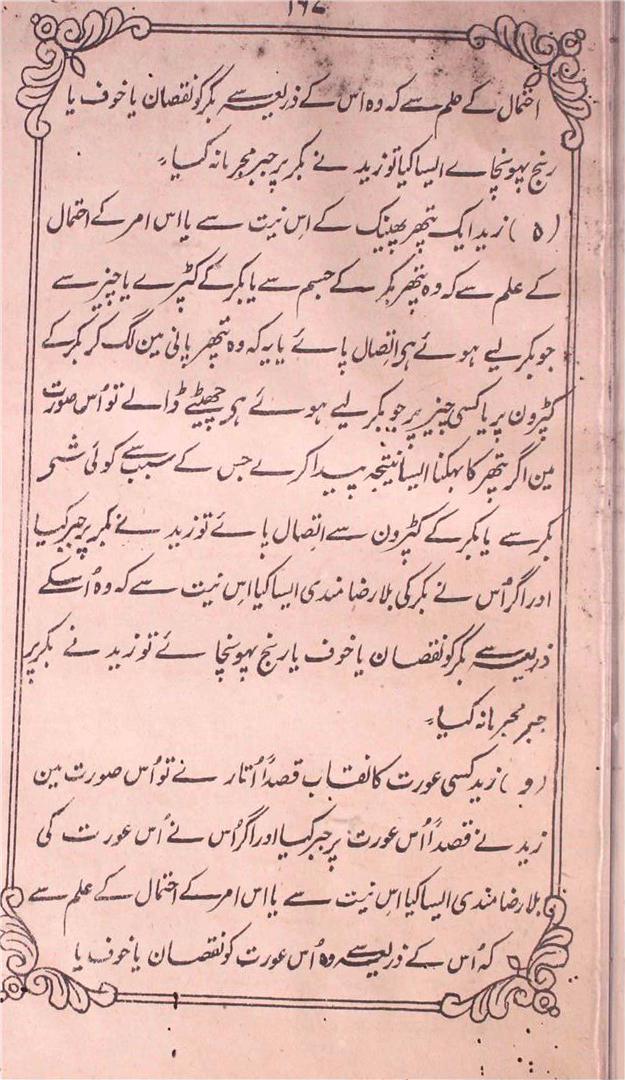 ۱۶۷
احتمال کے علم سے کہ وہ اس کے ذریعہ سے بکر کو نقصان یا خوف یا
رنج پہونچاے ایسا کیا تو زید نے بکر پر جبر مجرمانہ کیا۔
(ہ) زید ایک پتھر پھینک کے اِس نیت سے یا اس امر کے احتمال
کے علم سے کہ وہ پتھر بکر کے جسم سے یا بکر کے کپڑے یا چیز سے
جو بکر لیے ہوئے ہو اتصال پائے یا یہ کہ وہ پتھر پانی مین لگ کر بکر کے
کپڑون پر یا کسی چیز پر جو بکر لیے ہوئے ہو چھینٹے ڈالے تو اُس صورت
مین اگر پتھر کا پھکنا ایسا نتیجہ پیدا کرے جس کے سبب سے کوئی شے
بکر سے یا بکر کے کپڑون سے اتصال پائے تو زید نے بکر پر جبر کیا
اور اگر اُس نے بکر کی بلا رضامندی ایسا کیا اِس نیت سے کہ وہ اُسکے
ذریعہ سے بکر کو نقصان یا خوف یا رنج پہونچائے تو زید نے بکر پر
جبر مجرمانہ کیا۔
(و) زید کسی عورت کا نقاب قصداً اُتار نے تو اُس صورت مین
زید نے قصداً اُس عورت پر جبر کیا اور اگر اُس نے اُس عورت کی
بلا رضامندی ایسا کیا اِس نیت سے یا اس امر کے احتمال کے علم سے
کہ اُس کے ذریعہ سے وہ اُس عورت کو نقصان یا خوف یا